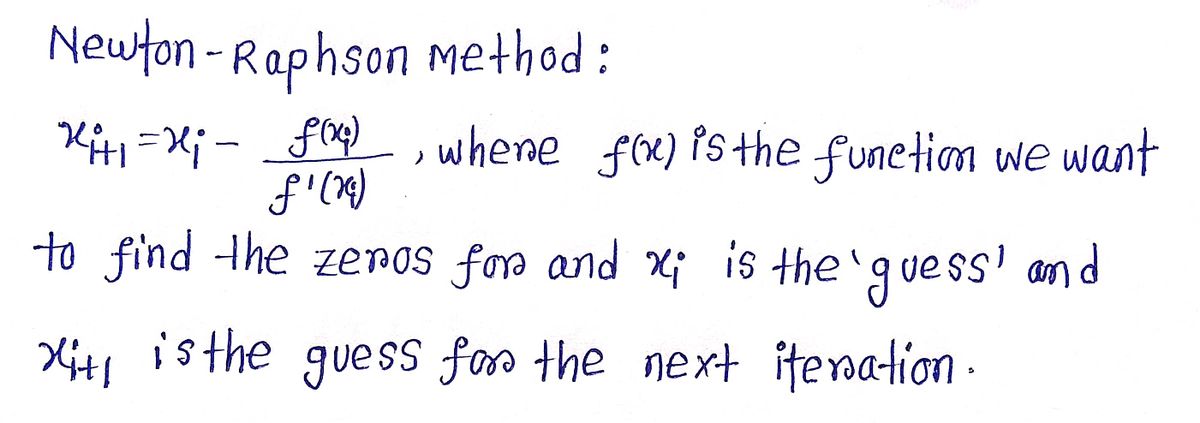 Newton-Raphson Method:
xᵢ₊₁ = xᵢ - f(xᵢ)/f'(xᵢ) , where f(x) is the function we want
to find the zeros for and xᵢ is the 'guess' and
xᵢ₊₁ is the guess for the next iteration.